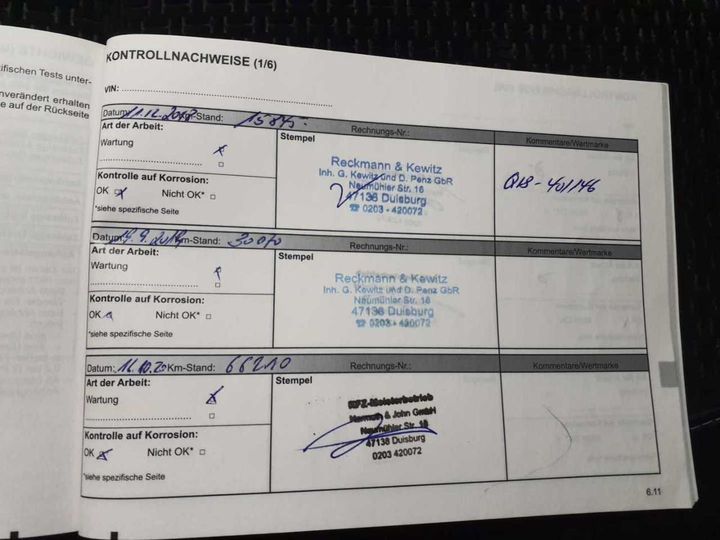 KONTROLLNACHWEISE (1/6)
ifischen Tests unter-
nverändert erhalten
e auf der Rückseite
VIN:
Datum: Km-Stand: Rechnungs-Nr.: Kommentare/Wertmarke
Art der Arbeit: Stempel
Wartung
Kontrolle auf Korrosion:
OK Nicht OK*
*siehe spezifische Seite
Reckmann & Kewitz
Inh. G. Kewitz und D. Penz GbR
Neumühler Str. 16
47136 Duisburg
☎ 0203 - 420072
Datum: Km-Stand: 30070 Rechnungs-Nr.: Kommentare/Wertmarke
Art der Arbeit: Stempel
Wartung
Kontrolle auf Korrosion:
OK Nicht OK*
*siehe spezifische Seite
Reckmann & Kewitz
Inh. G. Kewitz und D. Penz GbR
Neumühler Str. 16
47136 Duisburg
☎ 0203 - 420072
Datum: Km-Stand: 66210 Rechnungs-Nr.: Kommentare/Wertmarke
Art der Arbeit: Stempel
Wartung
Kontrolle auf Korrosion:
OK Nicht OK*
*siehe spezifische Seite
KFZ-Meisterbetrieb
& John GmbH
Neumühler Str. 16
47136 Duisburg
0203 420072
6.11